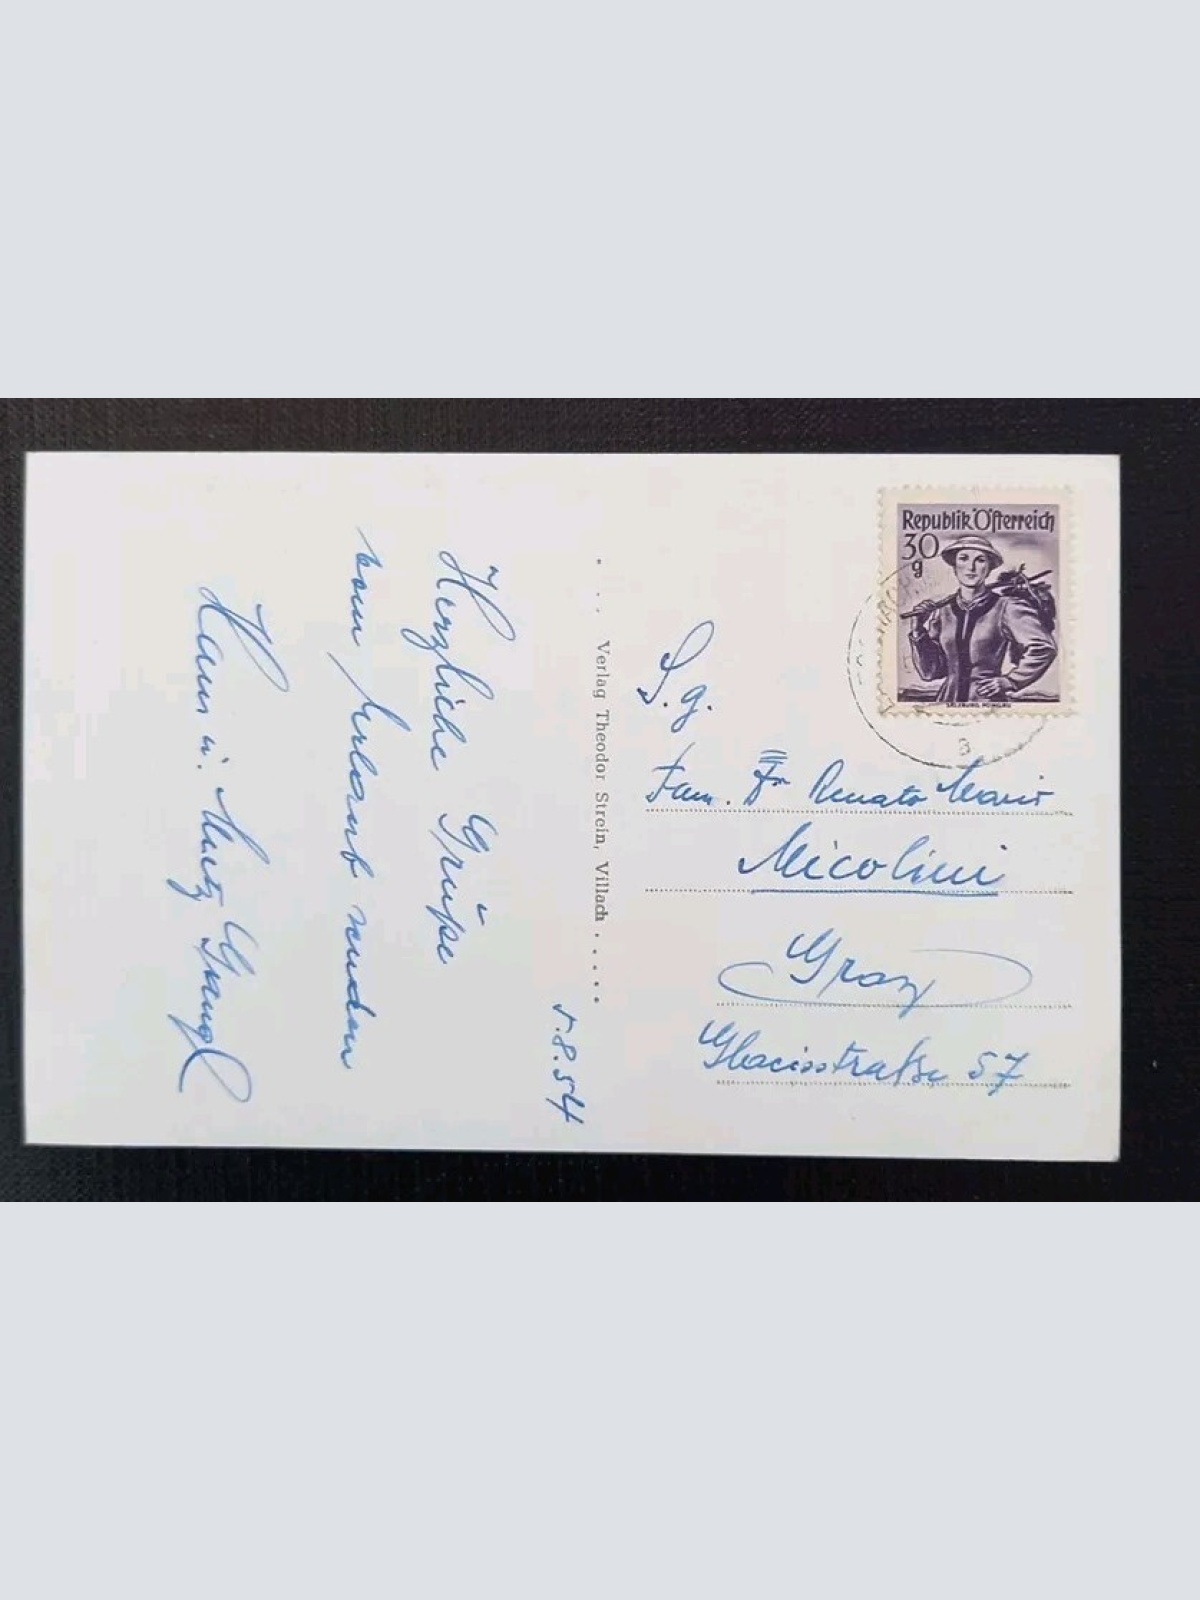 Herzliche Grüße
vom Urlaub senden
Hans u. Mitz Grangl
5.8.54
Verlag Theodor Strein, Villach
Republik Österreich
30
g
SALZBURG, PONGAU
a
S. g.
Fam. Renato Mario
Nicolini
Graz
Glacisstraße 57